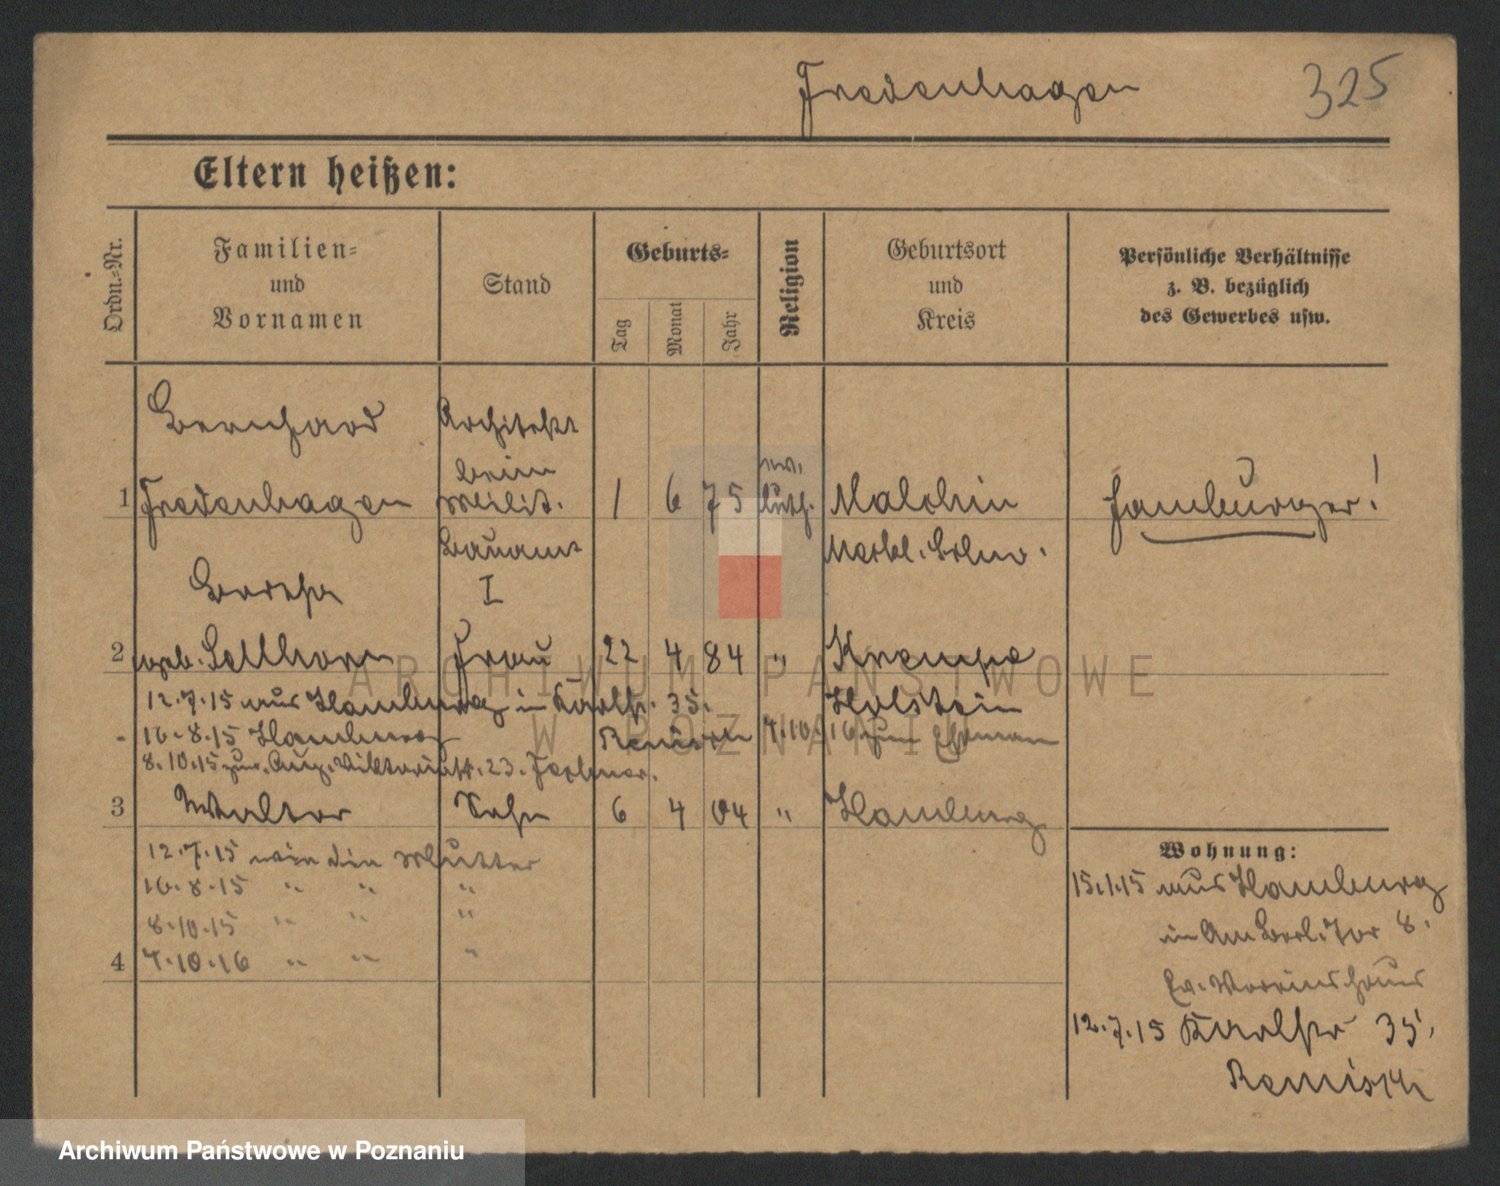 Fredenhagen
325
Eltern heißen:
Ordn.-Nr.
Familien-
und
Vornamen
Stand
Geburts-
Tag
Monat
Jahr
Religion
Geburtsort
und
Kreis
Persönliche Verhältnisse
z. B. bezüglich
des Gewerbes usw.
Bernhard
Architekt
beim
ev.
1 Fredenhagen Milit. 1 6 75 luth. Malchin Hamburger!
Bauamt Meckl. Schw.
I
Bertha
2 geb. Sellhorn Frau 22 4 84 " Krempe
12.7.15 aus Hamburg in Karlstr. 35. Holstein
16.8.15 Hamburg 4.10.16 zum Ehemann
8.10.15 zur. Aug. Viktoriastr. 23.
3 Walter Sohn 6 4 04 " Hamburg
12.7.15 wie die Mutter
16.8.15 " " "
8.10.15 " " "
4 4.10.16 " " "
Wohnung:
15.1.15 aus Hamburg
in Am Berl. Tor 8.
Ev. Vereinshaus
12.7.15 Karlstr 35,
ARCHIWUM PAŃSTWOWE
W POZNANIU
Archiwum Państwowe w Poznaniu